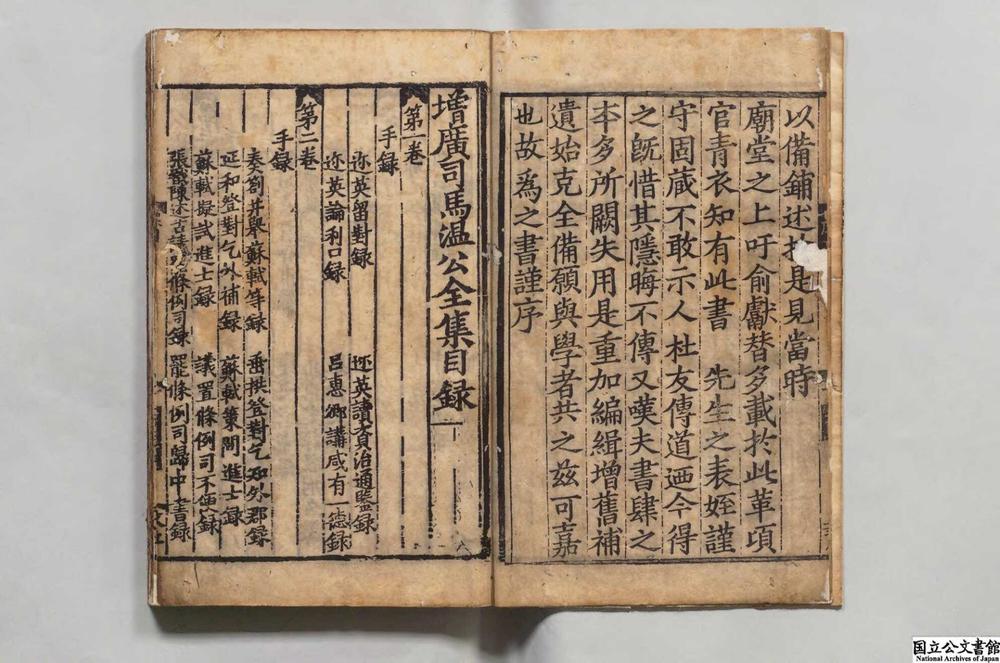 以備鋪述 是見當時
廟堂之上吁俞獻替多載於此革項
官青衣知有此書 先生之表姪謹
守固藏不敢示人杜友傳道迺今得
之旣惜其隱晦不傳又嘆夫書肆之
本多所闕失用是重加編緝增舊補
遺始克全備願與學者共之玆可嘉
也故爲之書謹序
增廣司馬温公全集目録
第一卷
手録
迩英留對録 迩英讀資治通鑑録
迩英論利口録 吕惠卿講咸有一德録
第二卷
手録
奏劄并舉蘇軾等録 垂拱登對乞知外郡録
延和登對乞外補録 蘇軾策問進士録
蘇軾擬試進士録 議置條例司不便録
張 陳述古 條例司録 罷條例司歸中書録
国立公文書館
National Archives of Japan